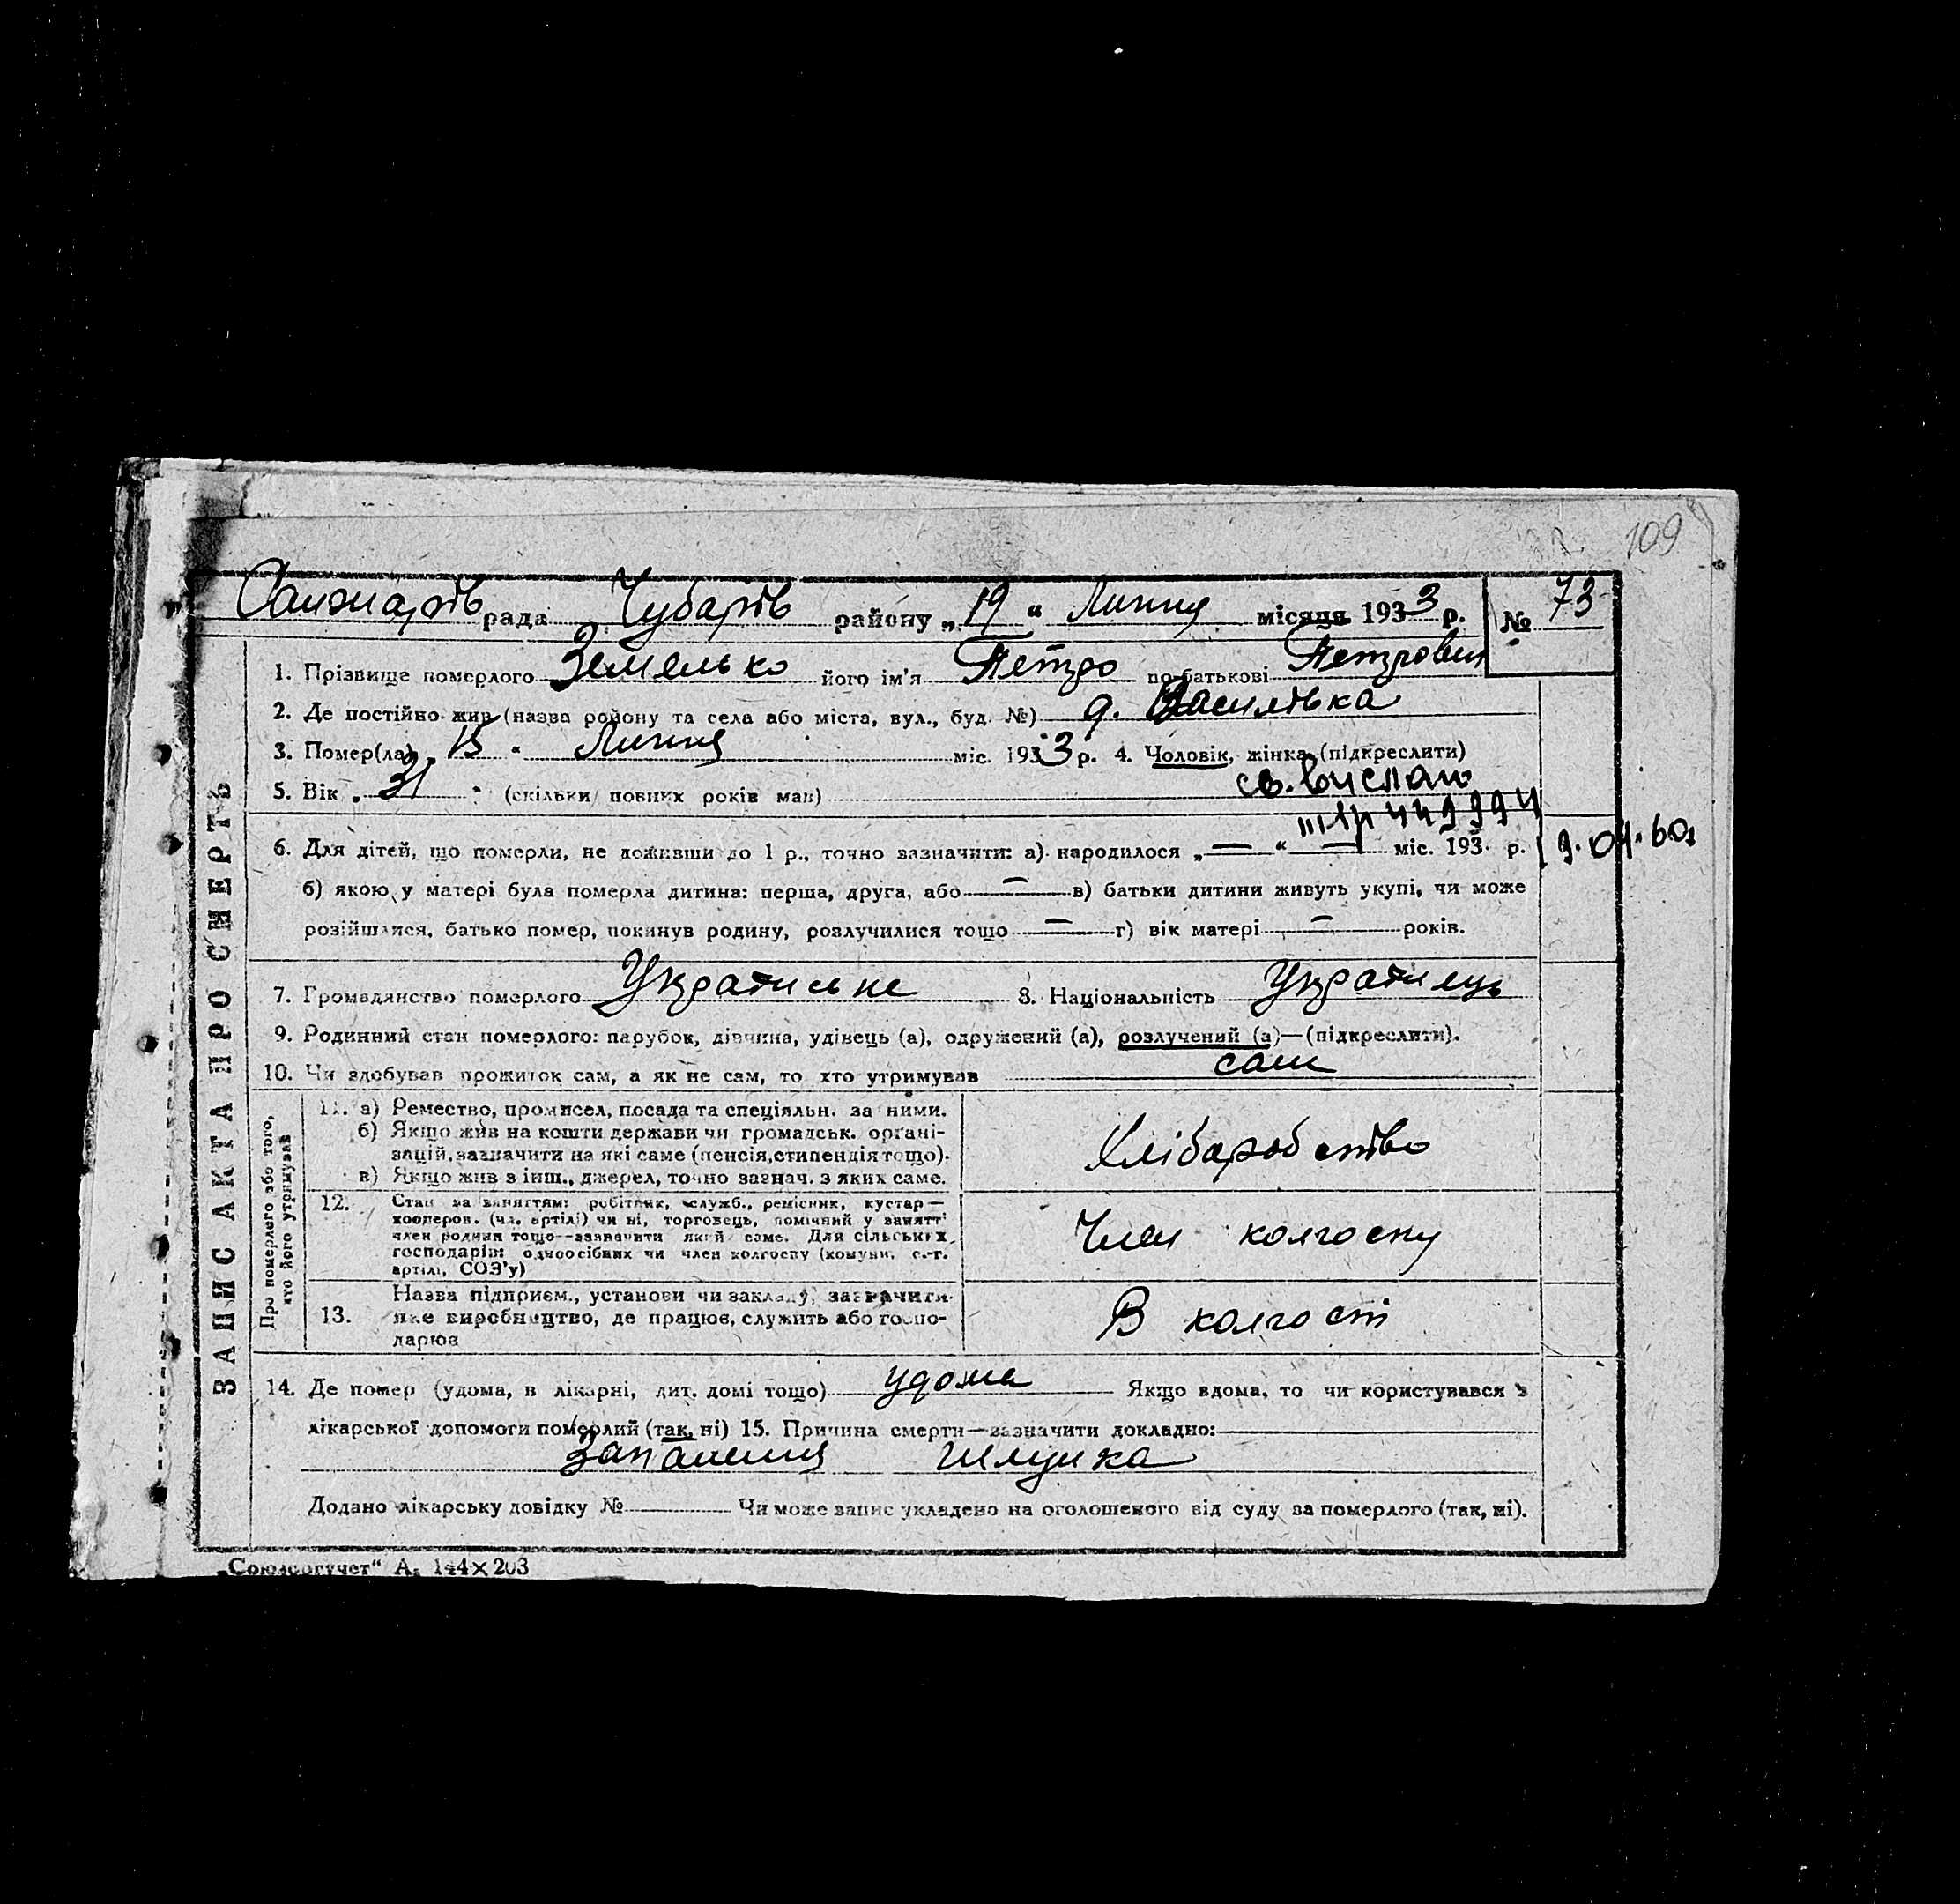 109
Санжарів рада Чубарів району „19“ Липня місяця 1933 р. № 73
1. Прізвище померлого Земелько його ім'я Петро по батькові Петрович
2. Де постійно жив (назва району та села або міста, вул., буд. №) д. Василівка
3. Помер(ла) „15“ Липня міс. 1933 р. 4. Чоловік, жінка (підкреслити)
5. Вік „31“ (скільки повних років мав) св. выслано
449994
6. Для дітей, що померли, не доживши до 1 р., точно зазначити: а) народилося „—“ — міс. 193 р. 9.04.60
б) якою у матері була померла дитина: перша, друга, або — в) батьки дитини живуть укупі, чи може
розійшлися, батько помер, покинув родину, розлучилися тощо — г) вік матері — років.
7. Громадянство померлого Українське 8. Національність Українець
9. Родинний стан померлого: парубок, дівчина, удівець (а), одружений (а), розлучений (а)—(підкреслити).
10. Чи здобував прожиток сам, а як не сам, то хто утримував сам
ЗАПИС АКТА ПРО СМЕРТЬ
Про померлого або того, хто його утримував
11. а) Ремество, промисел, посада та спеціяльн. за ними.
б) Якщо жив на кошти держави чи громадськ. органі-
зацій, зазначити на які саме (пенсія, стипендія тощо).
в) Якщо жив з інш., джерел, точно зазнач. з яких саме.
Хлібаробство
12. Стан за заняттям: робітник, служб., ремісник, кустар—
кооперов. (чл. артілі) чи ні, торговець, помічний у занятті
член родини тощо—зазначити який саме. Для сільських
господарів: одноосібник чи член колгоспу (комуни, с.-г.
артілі, СОЗ'у)
Член колгоспу
13. Назва підприєм., установи чи закладу, зазначити
яке виробництво, де працює, служить або госпо-
дарює
В колгоспі
14. Де помер (удома, в лікарні, дит. домі тощо) удома Якщо вдома, то чи користувався з
лікарської допомоги померлий (так, ні) 15. Причина смерти—зазначити докладно:
Запалення шлунка
Додано лікарську довідку № Чи може запис укладено на оголошеного від суду за померлого (так, ні).
„Союзоргучет“ А. 144×203